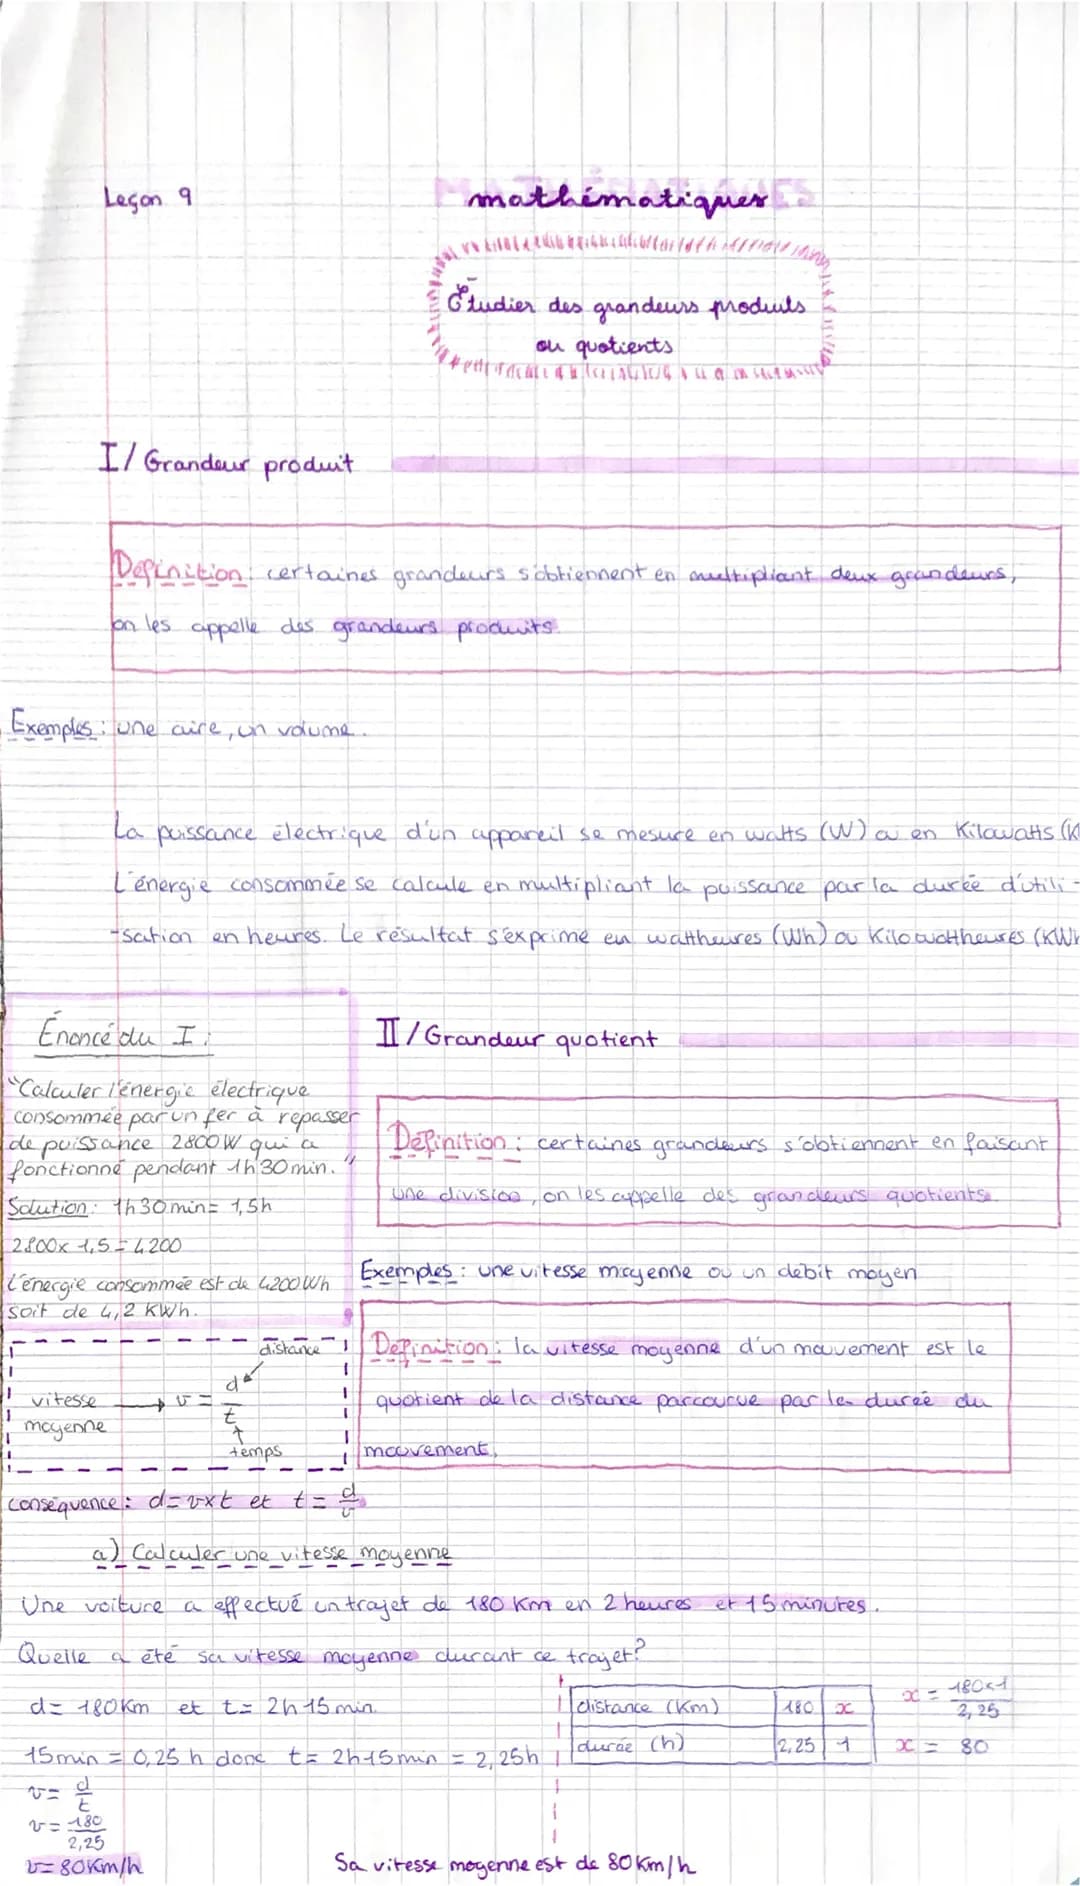 Leçon 9
mathématiques
Étudier des grandeurs produits
ou quotients
I/ Grandeur produit
Definition: certaines grandeurs s'obtiennent en multipliant deux grandeurs,
on les appelle des grandeurs produits.
Exemples: une aire, un volume.
La puissance électrique d'un appareil se mesure en watts (W) ou en Kilowatts (K
L'énergie consommée se calcule en multipliant la puissance par la durée d'utili-
-sation en heures. Le résultat s'exprime en wattheures (Wh) ou Kilowattheures (KWh
Énoncé du I:
"Calculer l'énergie électrique
consommée par un fer à repasser
de puissance 2800W qui a
fonctionné pendant 1h30min."
Solution: 1h30min= 1,5h
2800x 1,5 = 4200
L'énergie consommée est de 4200Wh
soit de 4,2 KWh.
II/ Grandeur quotient
Définition: certaines grandeurs s'obtiennent en faisant
une division, on les appelle des grandeurs quotients.
Exemples: une vitesse moyenne ou un débit moyen
Definition: la vitesse moyenne d'un mouvement est le
quotient de la distance parcourue par la durée du
mouvement.
distance
vitesse moyenne → v = d/t
temps
conséquence: d=v×t et t= d/v
a) Calculer une vitesse moyenne
Une voiture a effectué un trajet de 180 Km en 2 heures et 15 minutes.
Quelle a été sa vitesse moyenne durant ce trajet?
d= 180Km et t= 2h 15 min.
15min = 0,25 h donc t= 2h15min = 2,25h
v= d/t
v= 180/2,25
v= 80Km/h
distance (Km) 180 x
durée (h) 2,25 1
x = 180×1/2,25
x = 80
Sa vitesse moyenne est de 80Km/h